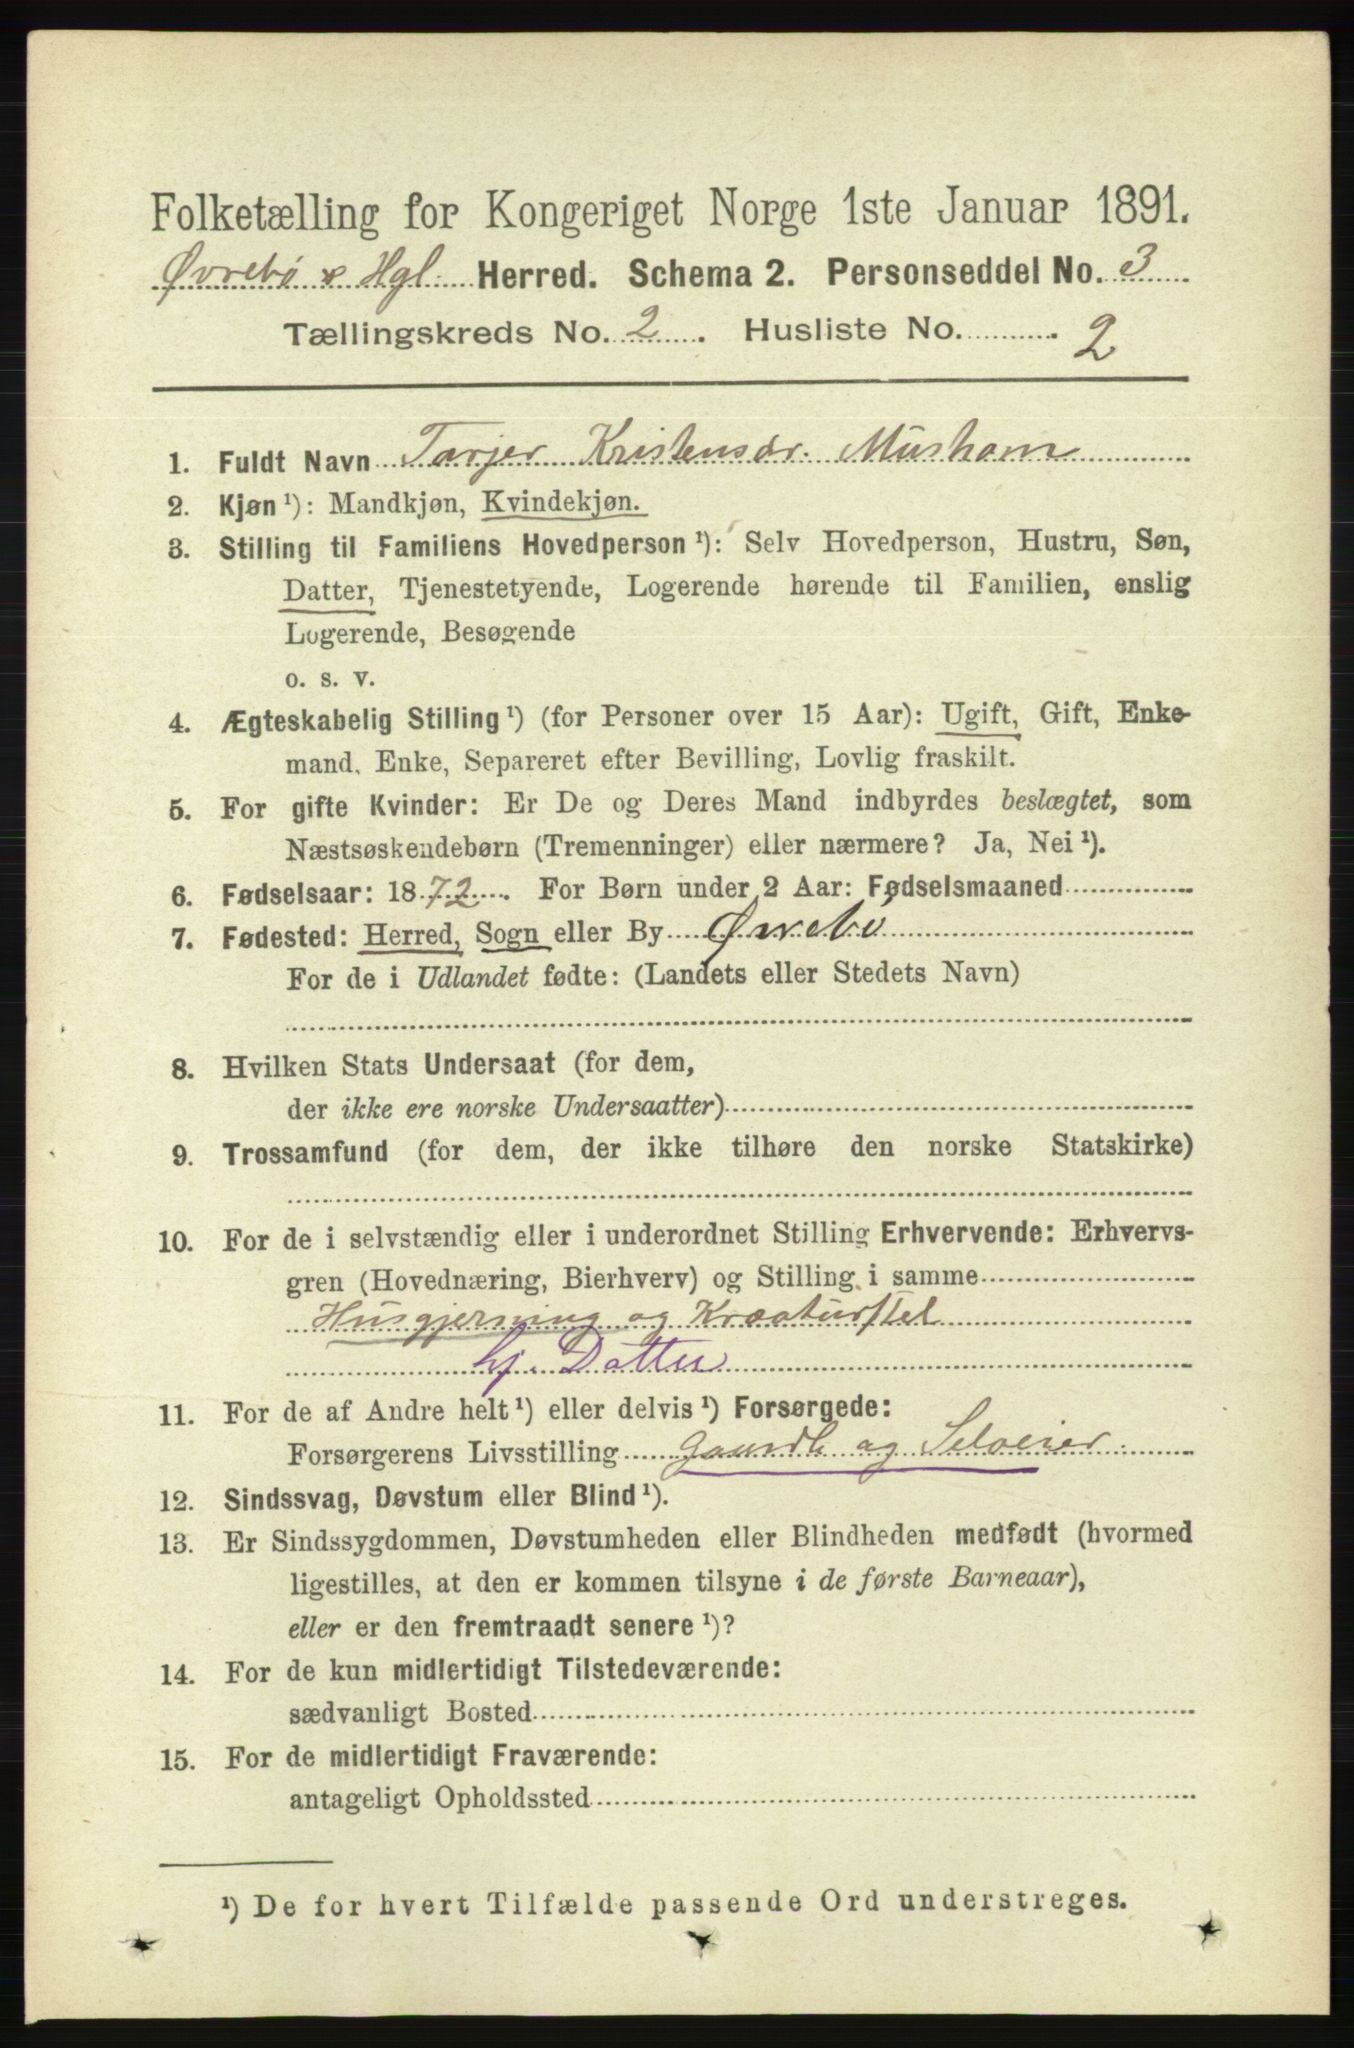 Folketælling for Kongeriget Norge 1ste Januar 1891.
Øvrebø & Hgl. Herred. Schema 2. Personseddel No. 3
Tællingskreds No. 2. Husliste No. 2
1. Fuldt Navn Tarjer Kristensdr. Musham
2. Kjøn ¹): Mandkjøn, Kvindekjøn.
3. Stilling til Familiens Hovedperson ¹): Selv Hovedperson, Hustru, Søn,
Datter, Tjenestetyende, Logerende hørende til Familien, enslig
Logerende, Besøgende
o. s. v.
4. Ægteskabelig Stilling ¹) (for Personer over 15 Aar): Ugift, Gift, Enke-
mand, Enke, Separeret efter Bevilling, Lovlig fraskilt.
5. For gifte Kvinder: Er De og Deres Mand indbyrdes beslægtet, som
Næstsøskendebørn (Tremenninger) eller nærmere? Ja, Nei ¹).
6. Fødselsaar: 1872. For Børn under 2 Aar: Fødselsmaaned
7. Fødested: Herred, Sogn eller By Øvrebø
For de i Udlandet fødte: (Landets eller Stedets Navn)
8. Hvilken Stats Undersaat (for dem,
der ikke ere norske Undersaatter)
9. Trossamfund (for dem, der ikke tilhøre den norske Statskirke)
10. For de i selvstændig eller i underordnet Stilling Erhvervende: Erhvervs-
gren (Hovednæring, Bierhverv) og Stilling i samme
Husgjerning og Kreaturstel
hj. Datter
11. For de af Andre helt ¹) eller delvis ¹) Forsørgede:
Forsørgerens Livsstilling Gaardb og Seleier
12. Sindssvag, Døvstum eller Blind ¹).
13. Er Sindssygdommen, Døvstumheden eller Blindheden medfødt (hvormed
ligestilles, at den er kommen tilsyne i de første Barneaar),
eller er den fremtraadt senere ¹)?
14. For de kun midlertidigt Tilstedeværende:
sædvanligt Bosted
15. For de midlertidigt Fraværende:
antageligt Opholdssted
¹) De for hvert Tilfælde passende Ord understreges.